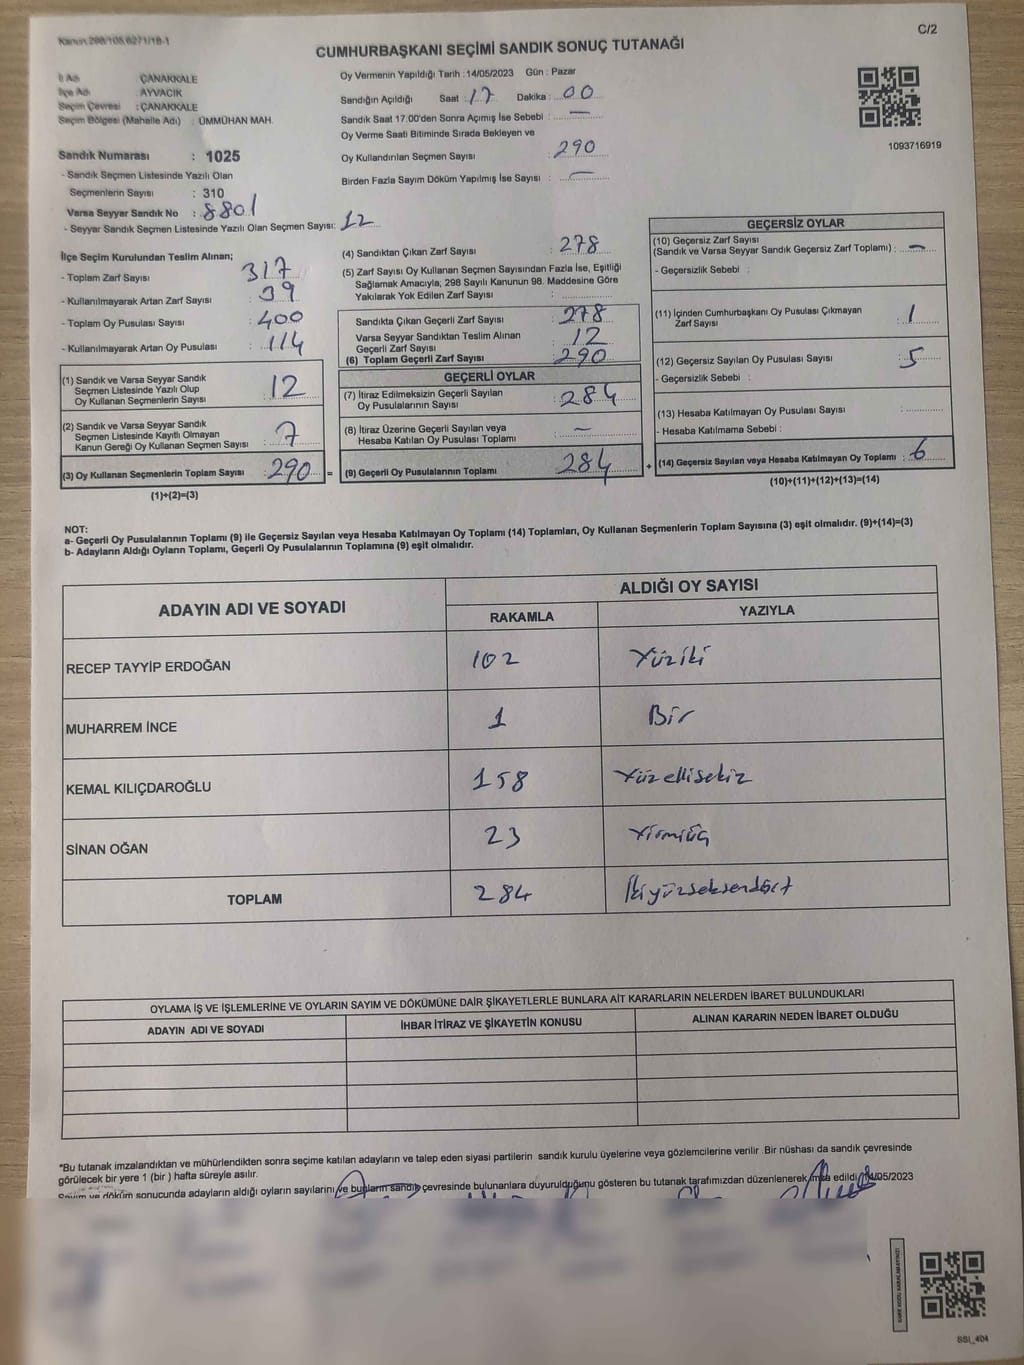 Kanun:298/105,6271/18-1
C/2
CUMHURBAŞKANI SEÇİMİ SANDIK SONUÇ TUTANAĞI
İl Adı : ÇANAKKALE
İlçe Adı : AYVACIK
Seçim Çevresi : ÇANAKKALE
Seçim Bölgesi (Mahalle Adı) : ÜMMÜHAN MAH.
Sandık Numarası : 1025
- Sandık Seçmen Listesinde Yazılı Olan
Seçmenlerin Sayısı : 310
Varsa Seyyar Sandık No : 8801
- Seyyar Sandık Seçmen Listesinde Yazılı Olan Seçmen Sayısı: 12
Oy Vermenin Yapıldığı Tarih :14/05/2023 Gün : Pazar
Sandığın Açıldığı Saat : 17 Dakika : 00
Sandık Saat 17.00'den Sonra Açımış İse Sebebi : —
Oy Verme Saati Bitiminde Sırada Bekleyen ve
Oy Kullandırılan Seçmen Sayısı : 290
Birden Fazla Sayım Döküm Yapılmış İse Sayısı : —
1093716919
İlçe Seçim Kurulundan Teslim Alınan;
- Toplam Zarf Sayısı : 317
- Kullanılmayarak Artan Zarf Sayısı : 39
- Toplam Oy Pusulası Sayısı : 400
- Kullanılmayarak Artan Oy Pusulası : 114
(1) Sandık ve Varsa Seyyar Sandık
Seçmen Listesinde Yazılı Olup
Oy Kullanan Seçmenlerin Sayısı : 12
(2) Sandık ve Varsa Seyyar Sandık
Seçmen Listesinde Kayıtlı Olmayan
Kanun Gereği Oy Kullanan Seçmen Sayısı : 7
(3) Oy Kullanan Seçmenlerin Toplam Sayısı : 290 =
(1)+(2)=(3)
(4) Sandıktan Çıkan Zarf Sayısı : 278
(5) Zarf Sayısı Oy Kullanan Seçmen Sayısından Fazla İse, Eşitliği
Sağlamak Amacıyla, 298 Sayılı Kanunun 98. Maddesine Göre
Yakılarak Yok Edilen Zarf Sayısı :
Sandıkta Çıkan Geçerli Zarf Sayısı : 278
Varsa Seyyar Sandıktan Teslim Alınan
Geçerli Zarf Sayısı : 12
(6) Toplam Geçerli Zarf Sayısı : 290
GEÇERLİ OYLAR
(7) İtiraz Edilmeksizin Geçerli Sayılan
Oy Pusulalarının Sayısı : 284
(8) İtiraz Üzerine Geçerli Sayılan veya
Hesaba Katılan Oy Pusulası Toplamı : —
(9) Geçerli Oy Pusulalarının Toplamı : 284 +
GEÇERSİZ OYLAR
(10) Geçersiz Zarf Sayısı
(Sandık ve Varsa Seyyar Sandık Geçersiz Zarf Toplamı) : —
- Geçersizlik Sebebi :
(11) İçinden Cumhurbaşkanı Oy Pusulası Çıkmayan
Zarf Sayısı : 1
(12) Geçersiz Sayılan Oy Pusulası Sayısı : 5
- Geçersizlik Sebebi :
(13) Hesaba Katılmayan Oy Pusulası Sayısı :
- Hesaba Katılmama Sebebi :
(14) Geçersiz Sayılan veya Hesaba Katılmayan Oy Toplamı : 6
(10)+(11)+(12)+(13)=(14)
NOT:
a- Geçerli Oy Pusulalarının Toplamı (9) ile Geçersiz Sayılan veya Hesaba Katılmayan Oy Toplamı (14) Toplamları, Oy Kullanan Seçmenlerin Toplam Sayısına (3) eşit olmalıdır. (9)+(14)=(3)
b- Adayların Aldığı Oyların Toplamı, Geçerli Oy Pusulalarının Toplamına (9) eşit olmalıdır.
ADAYIN ADI VE SOYADI
ALDIĞI OY SAYISI
RAKAMLA YAZIYLA
RECEP TAYYİP ERDOĞAN 102 Yüziki
MUHARREM İNCE 1 Bir
KEMAL KILIÇDAROĞLU 158 Yüzellisekiz
SİNAN OĞAN 23 Yirmiüç
TOPLAM 284 İkiyüzseksendört
OYLAMA İŞ VE İŞLEMLERİNE VE OYLARIN SAYIM VE DÖKÜMÜNE DAİR ŞİKAYETLERLE BUNLARA AİT KARARLARIN NELERDEN İBARET BULUNDUKLARI
ADAYIN ADI VE SOYADI İHBAR İTİRAZ VE ŞİKAYETİN KONUSU ALINAN KARARIN NEDEN İBARET OLDUĞU
*Bu tutanak imzalandıktan ve mühürlendikten sonra seçime katılan adayların ve talep eden siyasi partilerin sandık kurulu üyelerine veya gözlemcilerine verilir. Bir nüshası da sandık çevresinde
görülecek bir yere 1 (bir ) hafta süreyle asılır.
Sayım ve döküm sonucunda adayların aldığı oyların sayılarını ve bunların sandık çevresinde bulunanlara duyurulduğunu gösteren bu tutanak tarafımızdan düzenlenerek imza edildi. 14/05/2023
KARE KODU KARALAMAYINIZ!
SSI_404